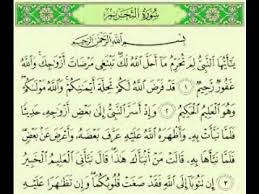 سُورَةُ التَّحْرِيمِ
بِسْمِ ٱللَّهِ ٱلرَّحْمَٰنِ ٱلرَّحِيمِ
يَٰٓأَيُّهَا ٱلنَّبِىُّ لِمَ تُحَرِّمُ مَآ أَحَلَّ ٱللَّهُ لَكَ تَبْتَغِى مَرْضَاتَ أَزْوَٰجِكَ وَٱللَّهُ
غَفُورٌ رَّحِيمٌ ١ قَدْ فَرَضَ ٱللَّهُ لَكُمْ تَحِلَّةَ أَيْمَٰنِكُمْ وَٱللَّهُ مَوْلَىٰكُمْ
وَهُوَ ٱلْعَلِيمُ ٱلْحَكِيمُ ٢ وَإِذْ أَسَرَّ ٱلنَّبِىُّ إِلَىٰ بَعْضِ أَزْوَٰجِهِۦ حَدِيثًا
فَلَمَّا نَبَّأَتْ بِهِۦ وَأَظْهَرَهُ ٱللَّهُ عَلَيْهِ عَرَّفَ بَعْضَهُۥ وَأَعْرَضَ عَنۢ بَعْضٍ
فَلَمَّا نَبَّأَهَا بِهِۦ قَالَتْ مَنْ أَنۢبَأَكَ هَٰذَا قَالَ نَبَّأَنِىَ ٱلْعَلِيمُ ٱلْخَبِيرُ
٣ إِن تَتُوبَآ إِلَى ٱللَّهِ فَقَدْ صَغَتْ قُلُوبُكُمَا وَإِن تَظَٰهَرَا عَلَيْهِ